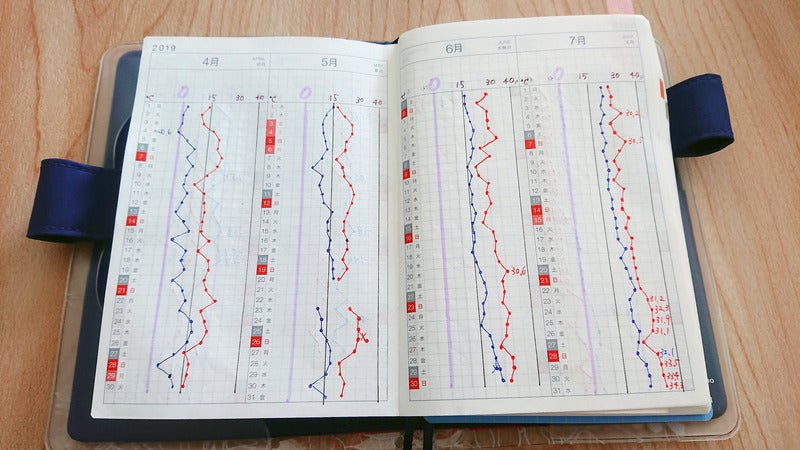 2019
4月
0
15
30
40
℃
1 月
2 火
3 水
4 木
5 金
6 土
7 日
8 月
9 火
10 水
11 木
12 金
13 土
14 日
15 月
16 火
17 水
18 木
19 金
20 土
21 日
22 月
23 火
24 水
25 木
26 金
27 土
28 日
29 月
30 火
5月
0
15
30
40
℃
1 水
2 木
3 金
4 土
5 日
6 月
7 火
8 水
9 木
10 金
11 土
12 日
13 月
14 火
15 水
16 木
17 金
18 土
19 日
20 月
21 火
22 水
23 木
24 金
25 土
26 日
27 月
28 火
29 水
30 木
31 金
6月
JUNE
0
15
30
40
1 土
2 日
3 月
4 火
5 水
6 木
7 金
8 土
9 日
10 月
11 火
12 水
13 木
14 金
15 土
16 日
17 月
18 火
19 水
20 木
21 金
22 土
23 日
24 月
25 火
26 水
27 木
28 金
29 土
30 日
30.6
7月
JULY
0
15
30
40
1 月
2 火
3 水
4 木
5 金
6 土
7 日
8 月
9 火
10 水
11 木
12 金
13 土
14 日
15 月
16 火
17 水
18 木
19 金
20 土
21 日
22 月
23 火
24 水
25 木
26 金
27 土
28 日
29 月
30 火
31 水
30.2
31.2
32.3
31.9
31.1
32.1
33.5